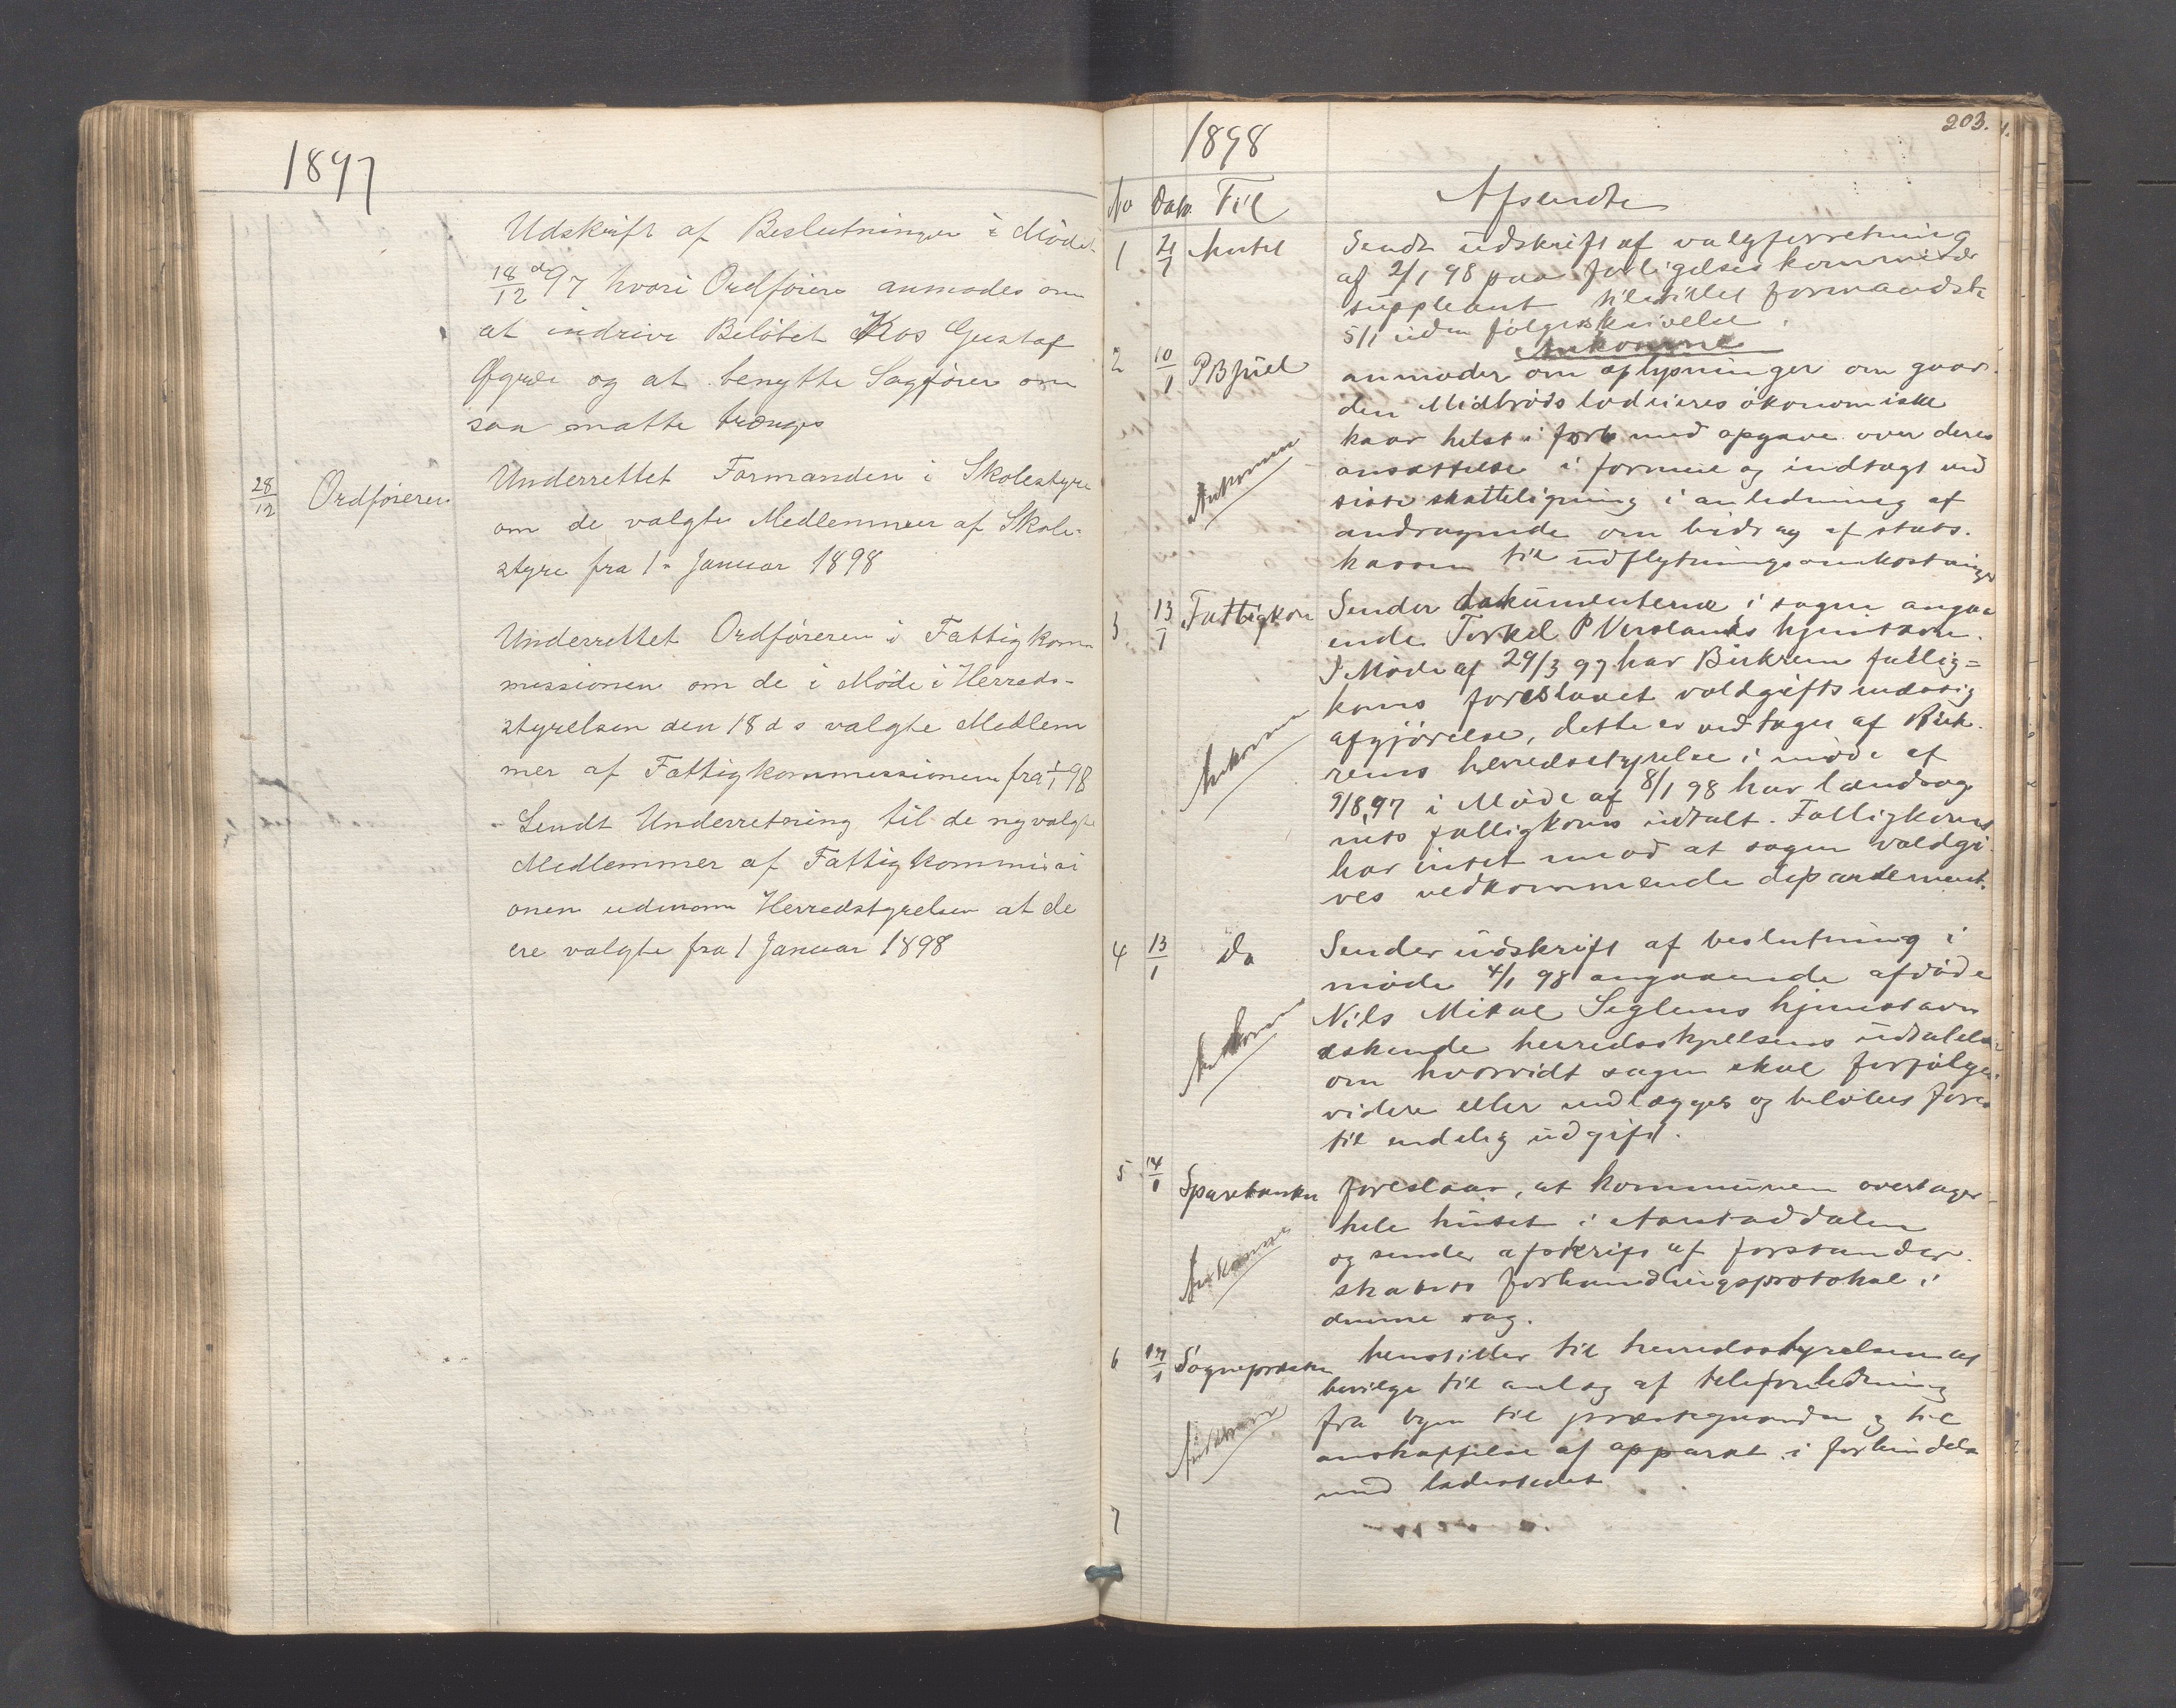 1897
Udskrift af Beslutninger i Møde
18/12 97 hvori Ordføreren anmodes om
at inddrive Beløbet Hos Gustaf
Øgræi og at benytte Sagfører om
saa maatte trænges
28/12 Ordføreren
Underrettet Formanden i Skolestyre
om de valgte Medlemmer af Skole-
styre fra 1 Januar 1898
Underrettet Ordføreren i Fattigkom-
missionen om de i Møde i Herreds-
styrelsen den 18 ds valgte Medlem
mer af Fattigkommissionen fra 1/1 98
Sendt Underretning til de nyvalgte
Medlemmer af Fattigkommissi
onen udenom Herredstyrelsen at de
ere valgte fra 1 Januar 1898
203.
1898
No Dato Til Afsendte
1 4/1 Amtet Sendt udskrift af valgforretning
af 2/1 98 paa forligelseskommissær
suppleant tilstillet formandsk
5/1 uden følgeskrivelse.
Ankomne
2 10/1 P B Juel anmoder om oplysninger om gaar-
den Midbrøds lodeieres økonomiske
kaar helst i forb med opgave over deres
ansættelse i formue og indtægt ved
siste skatteligning i anledning af
andragende om bidrag af stats-
kassen til udflytningsomkostninger
Ankomne
3 13/1 Fattigkom Sender dokumenterne i sagen angaa
ende Torkel P Versland's hjemstavn.
I Møde af 29/3 97 har Birkrem fattig=
koms foreslaaet voldgiftsmæssig
afgjørelse, dette er vedtaget af Birk-
rems herredsstyrelse i møde af
9/8 97 i Møde af 8/1 98 har landsog
nets fattigkoms udtalt. Fattigkoms
har intet imod at sagen voldgi
ves vedkommende departement.
Ankomne
4 13/1 Do Sender udskrift af beslutning i
møde 4/1 98 angaaende afdøde
Nils Mikal Seglems hjemstavn
æskende herredsstyrelsens udtalelse
om hvorvidt sagen skal forfølges
videre eller nedlægges og beløbet føres
til endelig udgift.
Ankomne
5 14/1 Sparebanken foreslaar, at kommunen overtager
hele huset i Aarstaddalen
og sender afskrift af forstander-
skabets forhandlingsprotokol i
denne sag.
Ankomne
6 17/1 Sognepresten henstiller til herredsstyrelsen at
bevilge til anlæg af telefonledning
fra byen til præstegaarden og til
anskaffelse af apparat i forbindelse
med ladestedet
Ankomne
7